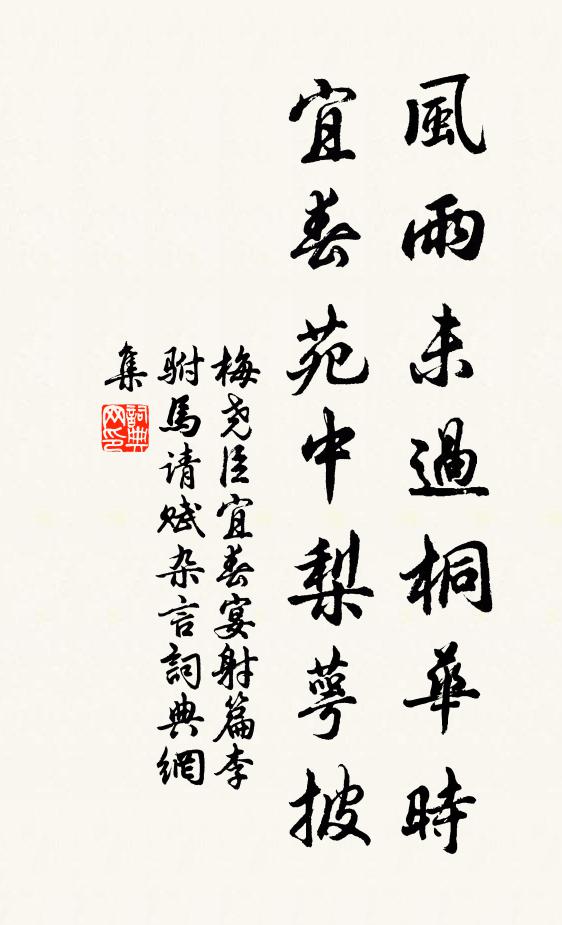 風雨未過桐華時
宜春苑中梨萼披
梅尧臣宜春宴射篇李
駙馬请赋杂言詞典網
集
詞典
网印